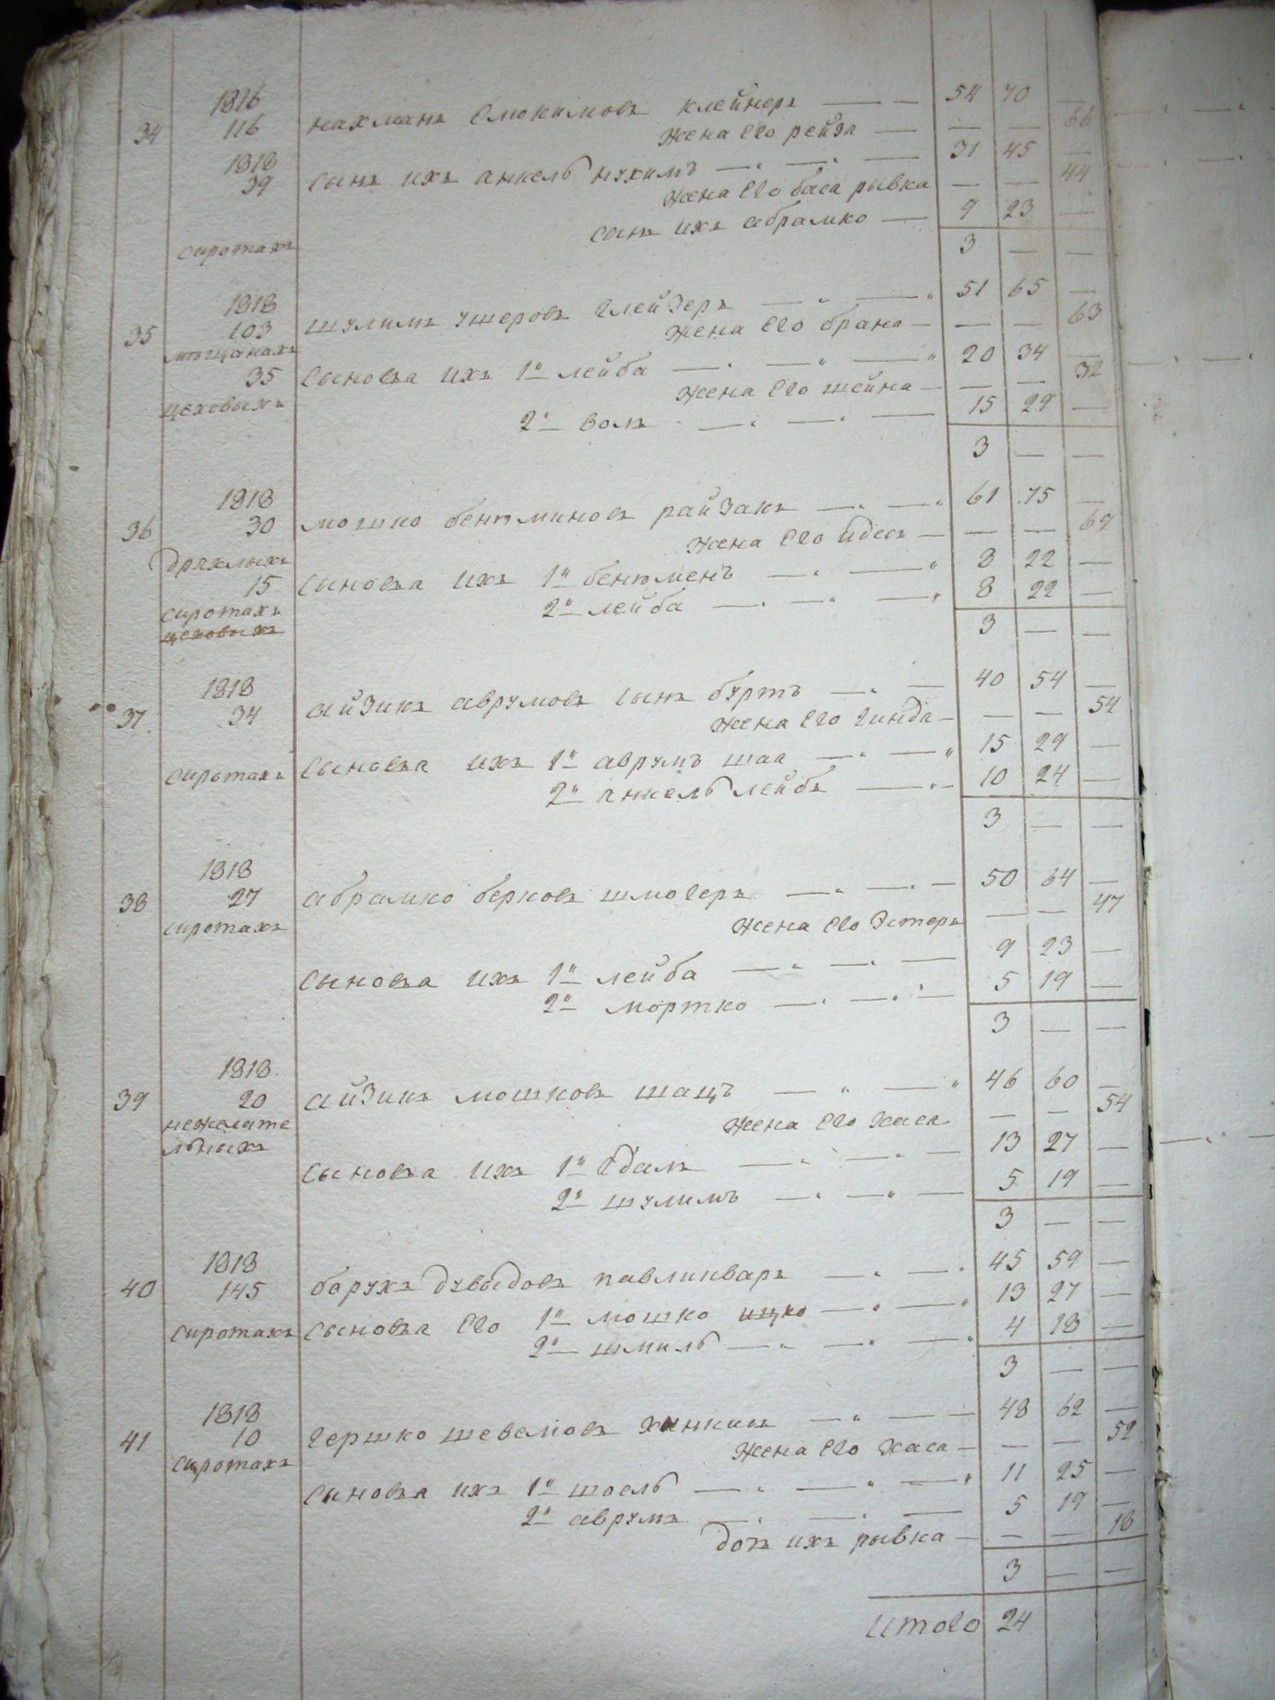 1816
34 116 нахманъ Смокимовъ клейнеръ 54 70 —
жена его рейза — — 66
1818
39 сынъ ихъ анкель нухимъ 31 45 —
жена его баса рывка — — 44
сынъ ихъ абрамко 9 23 —
сиротахъ 3 — —
1818
35 103 шулимъ ушеровъ глейзеръ 51 65 —
мѣщанахъ жена его брана — — 63
35 сыновья ихъ 1й лейба 20 34 —
цеховыхъ жена его шейна — — 32
2й волъ 15 29 —
3 — —
1818
36 30 мошко бенъминовъ райзахъ 61 75 —
жена его идесъ — — 69
дряхлыхъ
15 сыновья ихъ 1й бенъменъ 8 22 —
сиротахъ 2й лейба 8 22 —
цеховыхъ 3 — —
1818
37 34 айзикъ аврумовъ сынъ буртъ 40 54 —
жена его гинда — — 54
сиротахъ сыновья ихъ 1й аврумъ шая 15 29 —
2й анкель лейбъ 10 24 —
3 — —
1818
38 27 абрамко берковъ шмогеръ 50 64 —
сиротахъ жена его Эстеръ — — 47
сыновья ихъ 1й лейба 9 23 —
2й мортко 5 19 —
3 — —
1818
39 20 айзикъ мошковъ шацъ 46 60 —
нежелате жена его хася — — 54
льныхъ
сыновья ихъ 1й Гдалъ 13 27 —
2й шулимъ 5 19 —
3 — —
1818
40 145 борухъ дувыдовъ павлинваръ 45 59 —
сиротахъ сыновья его 1й мошко ицко 13 27 —
2й шмиль 4 18 —
3 — —
1818
41 10 гершко шевелювъ 48 62 —
сиротахъ жена его хася — — 52
сыновья ихъ 1й шоель 11 25 —
2й аврумъ 5 19 —
дочь ихъ рывка — — 18
3 — —
Итого 24